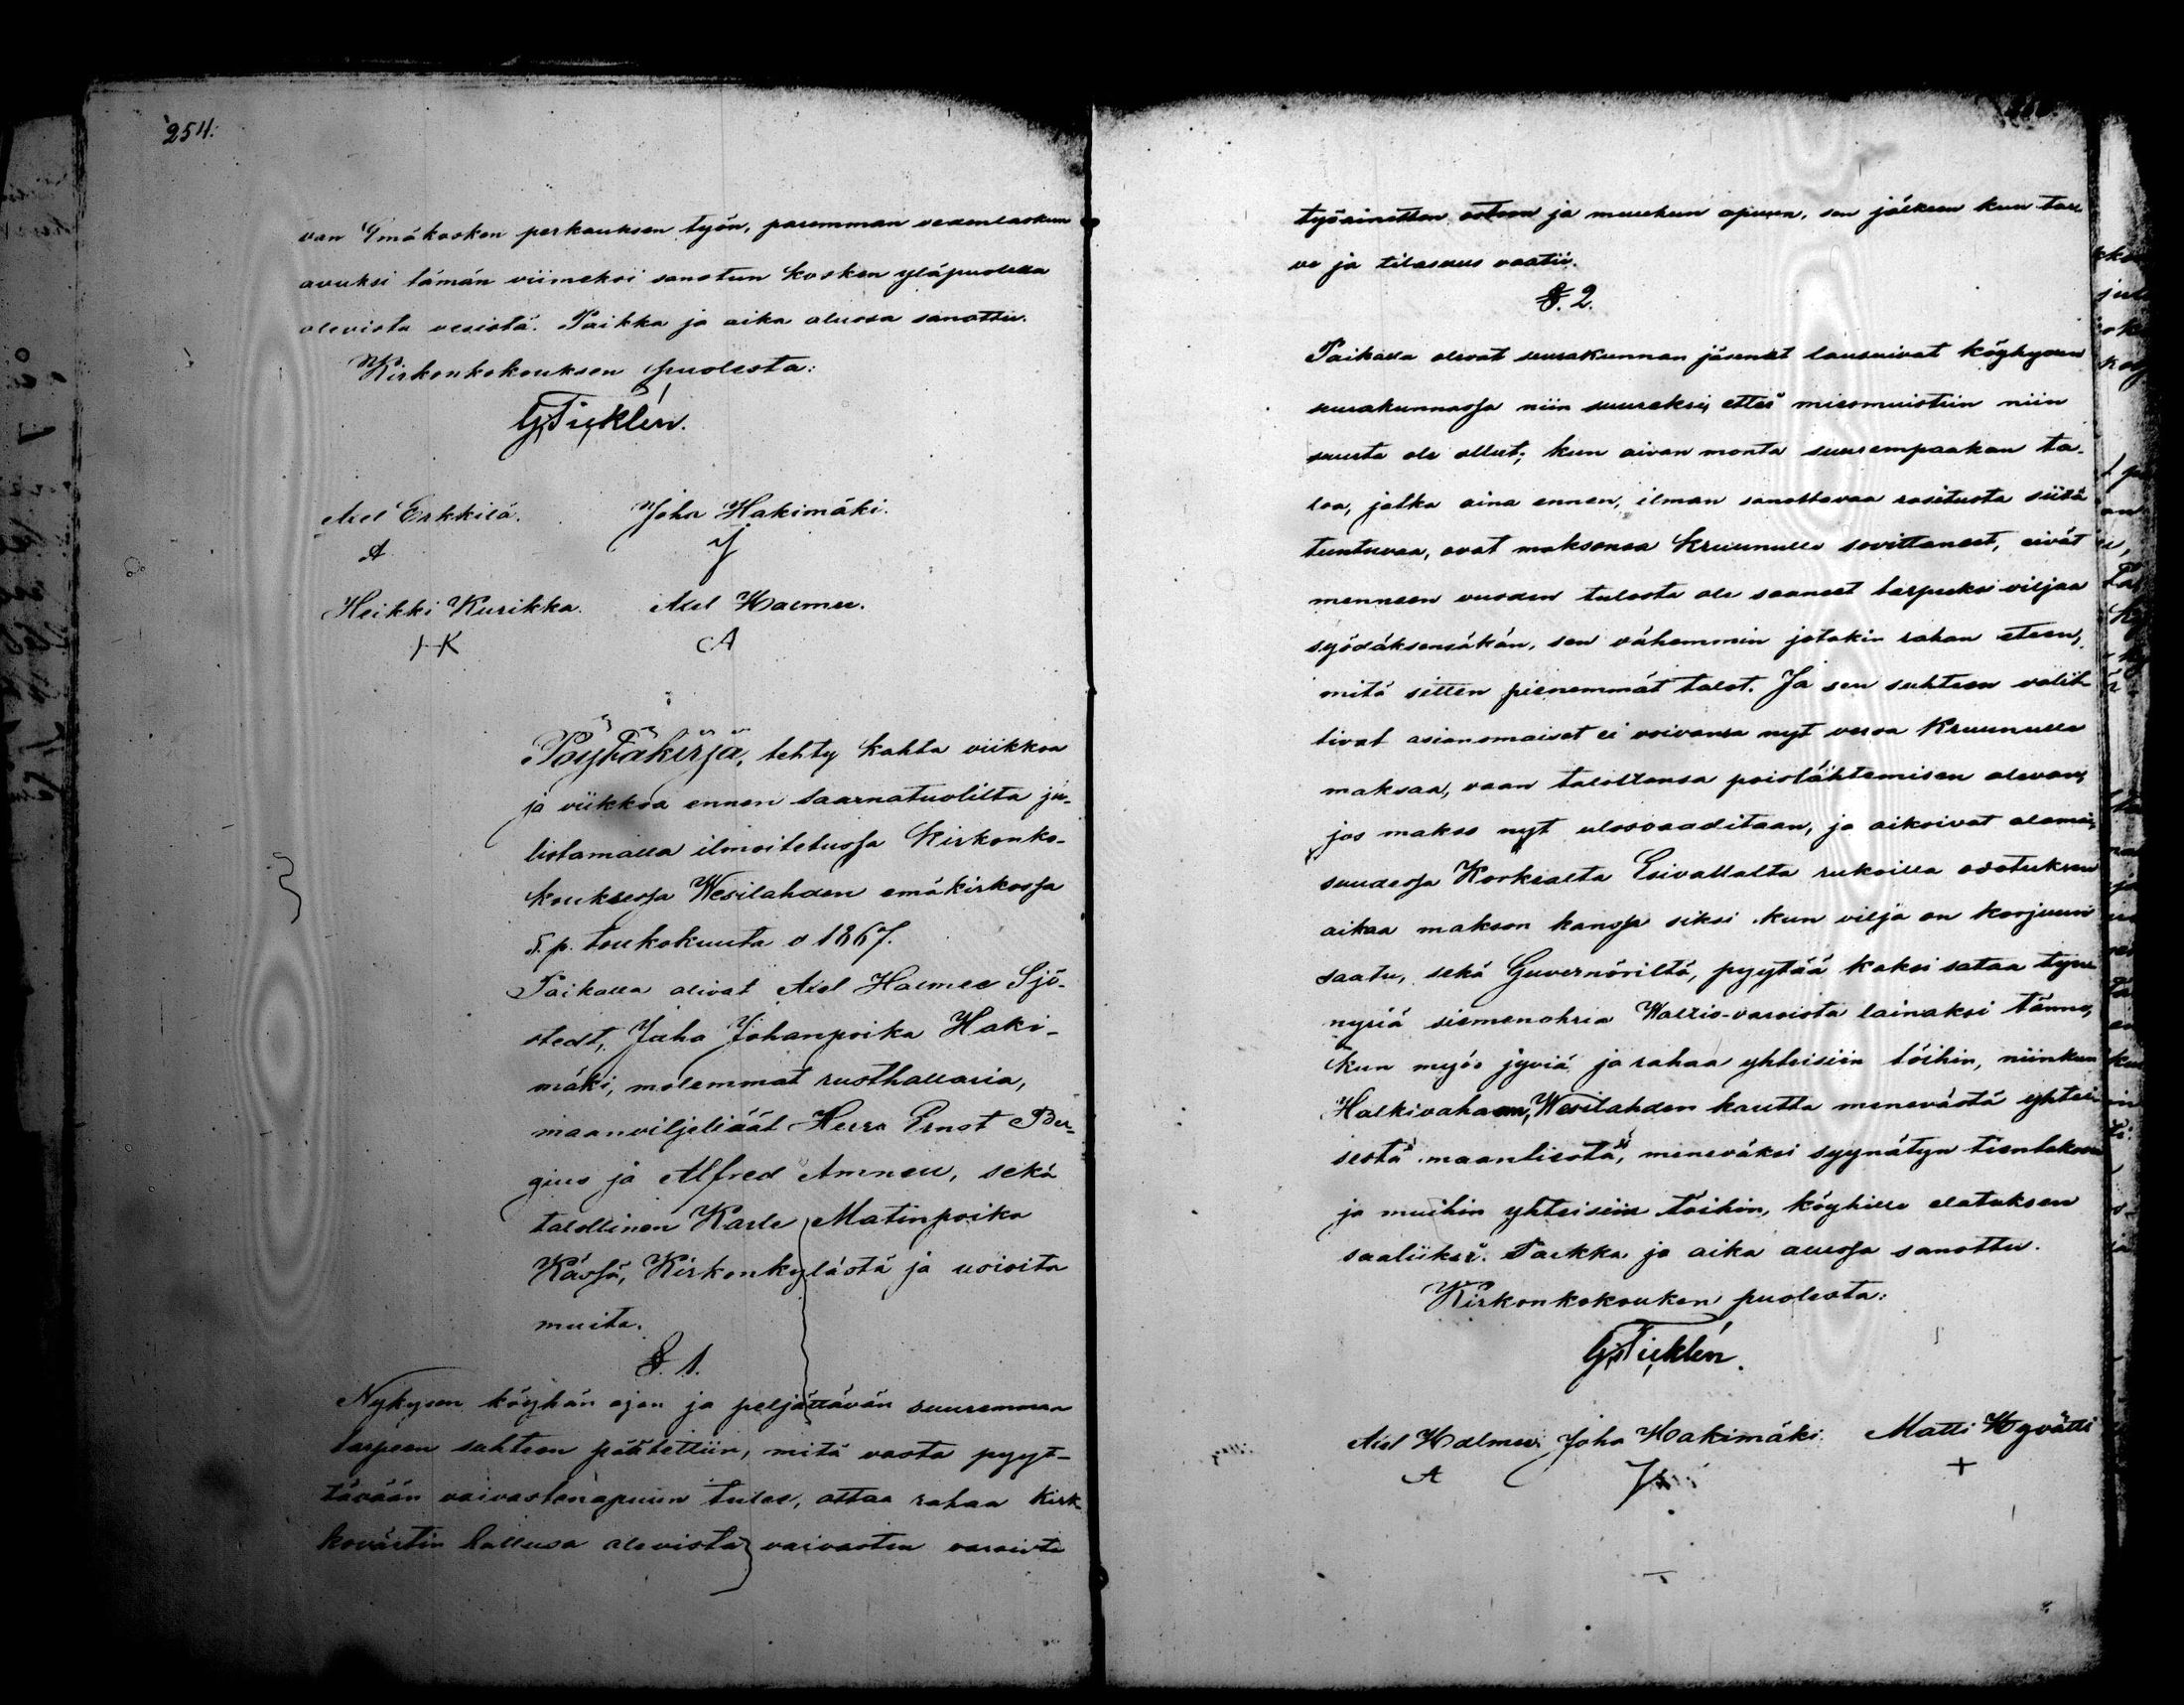 254.
van Ämäkosken perkauksen työn, paremman vedenlaskun
avuksi tämän viimeksi sanotun kosken yläpuolella
olevista vesistä. Paikka ja aika alussa sanottu.
Kirkonkokouksen puolesta:
G. Ticklén.
Axel Erkkilä. Joha Hakimäki.
A J
Heikki Kurikka. Axel Halmee.
HK A
Pöytäkirja, tehty kahta viikkoa
ja viikkoa ennen saarnatuolilta ju-
listamalla ilmoitetussa Kirkonko-
kouksessa Wesilahden emäkirkossa
5. p. toukokuuta v 1867.
Paikalla olivat Axel Halmee Sjö-
stedt, Juha Johanpoika Haki-
mäki, molemmat rusthollaria,
maanviljeliäät Herra Ernst Ber-
gius ja Alfred Amnell, sekä
talollinen Karle Matinpoika
Kässä, Kirkonkylästä ja usioita
muita.
§. 1.
Nykysen köyhän ajan ja peljättävän suuremman
tarpeen suhteen päätettiin, mitä vasta pyyt-
tävään vaivastenapuun tulee, ottaa rahaa Kirk-
kovärtin hallussa olevista vaivasten varoista
työainetten ostoon ja muuhun apuun, sen jälkeen kun tar-
ve ja tilaisuus vaatii.
§. 2.
Paikalla olevat seurakunnan jäsenet lausuivat köyhyyden
seurakunnassa niin suureksi, ettei miesmuistiin niin
suurta ole ollut; kun aivan monta suurempaakan ta-
loa, jotka aina ennen, ilman sanottavaa rasitusta siitä
tuntuvaa, ovat maksonsa Kruunulle sovittaneet, eivät
menneen vuoden tulosta ole saaneet tarpeeksi viljaa
syödäksensäkän, sen vähemmin jotakin rahan eteen,
mitä sitten pienemmät talot. Ja sen suhteen valit-
tivat asianomaiset ei voivansa nyt veroa Kruunulle
maksaa, vaan taloltansa poislähtemisen olevan,
jos makso nyt ulosvaaditaan, ja aikoivat alamai-
suudessa Korkialta Esivallalta rukoilla odotuksen
aikaa makson kanssa siksi kun vilja on korjuun
saatu, sekä Guvernöriltä, pyytää kaksi sataa tyn-
nyriä siemenohria Waltio-varoista lainaksi tänne,
kun myös jyviä ja rahaa yhteisiin töihin, niinkun
Halkivahaan, Wesilahden kautta menevästä yhtei-
sestä maantiestä, meneväksi syynätyn tientekoon
ja muihin yhteisiin töihin, köyhille elatuksen
saaliiksi. Paikka ja aika alussa sanottu.
Kirkonkokouken puolesta:
G. Ticklén.
Axel Halmee. Joha Hakimäki. Matti Hyvätti
A +